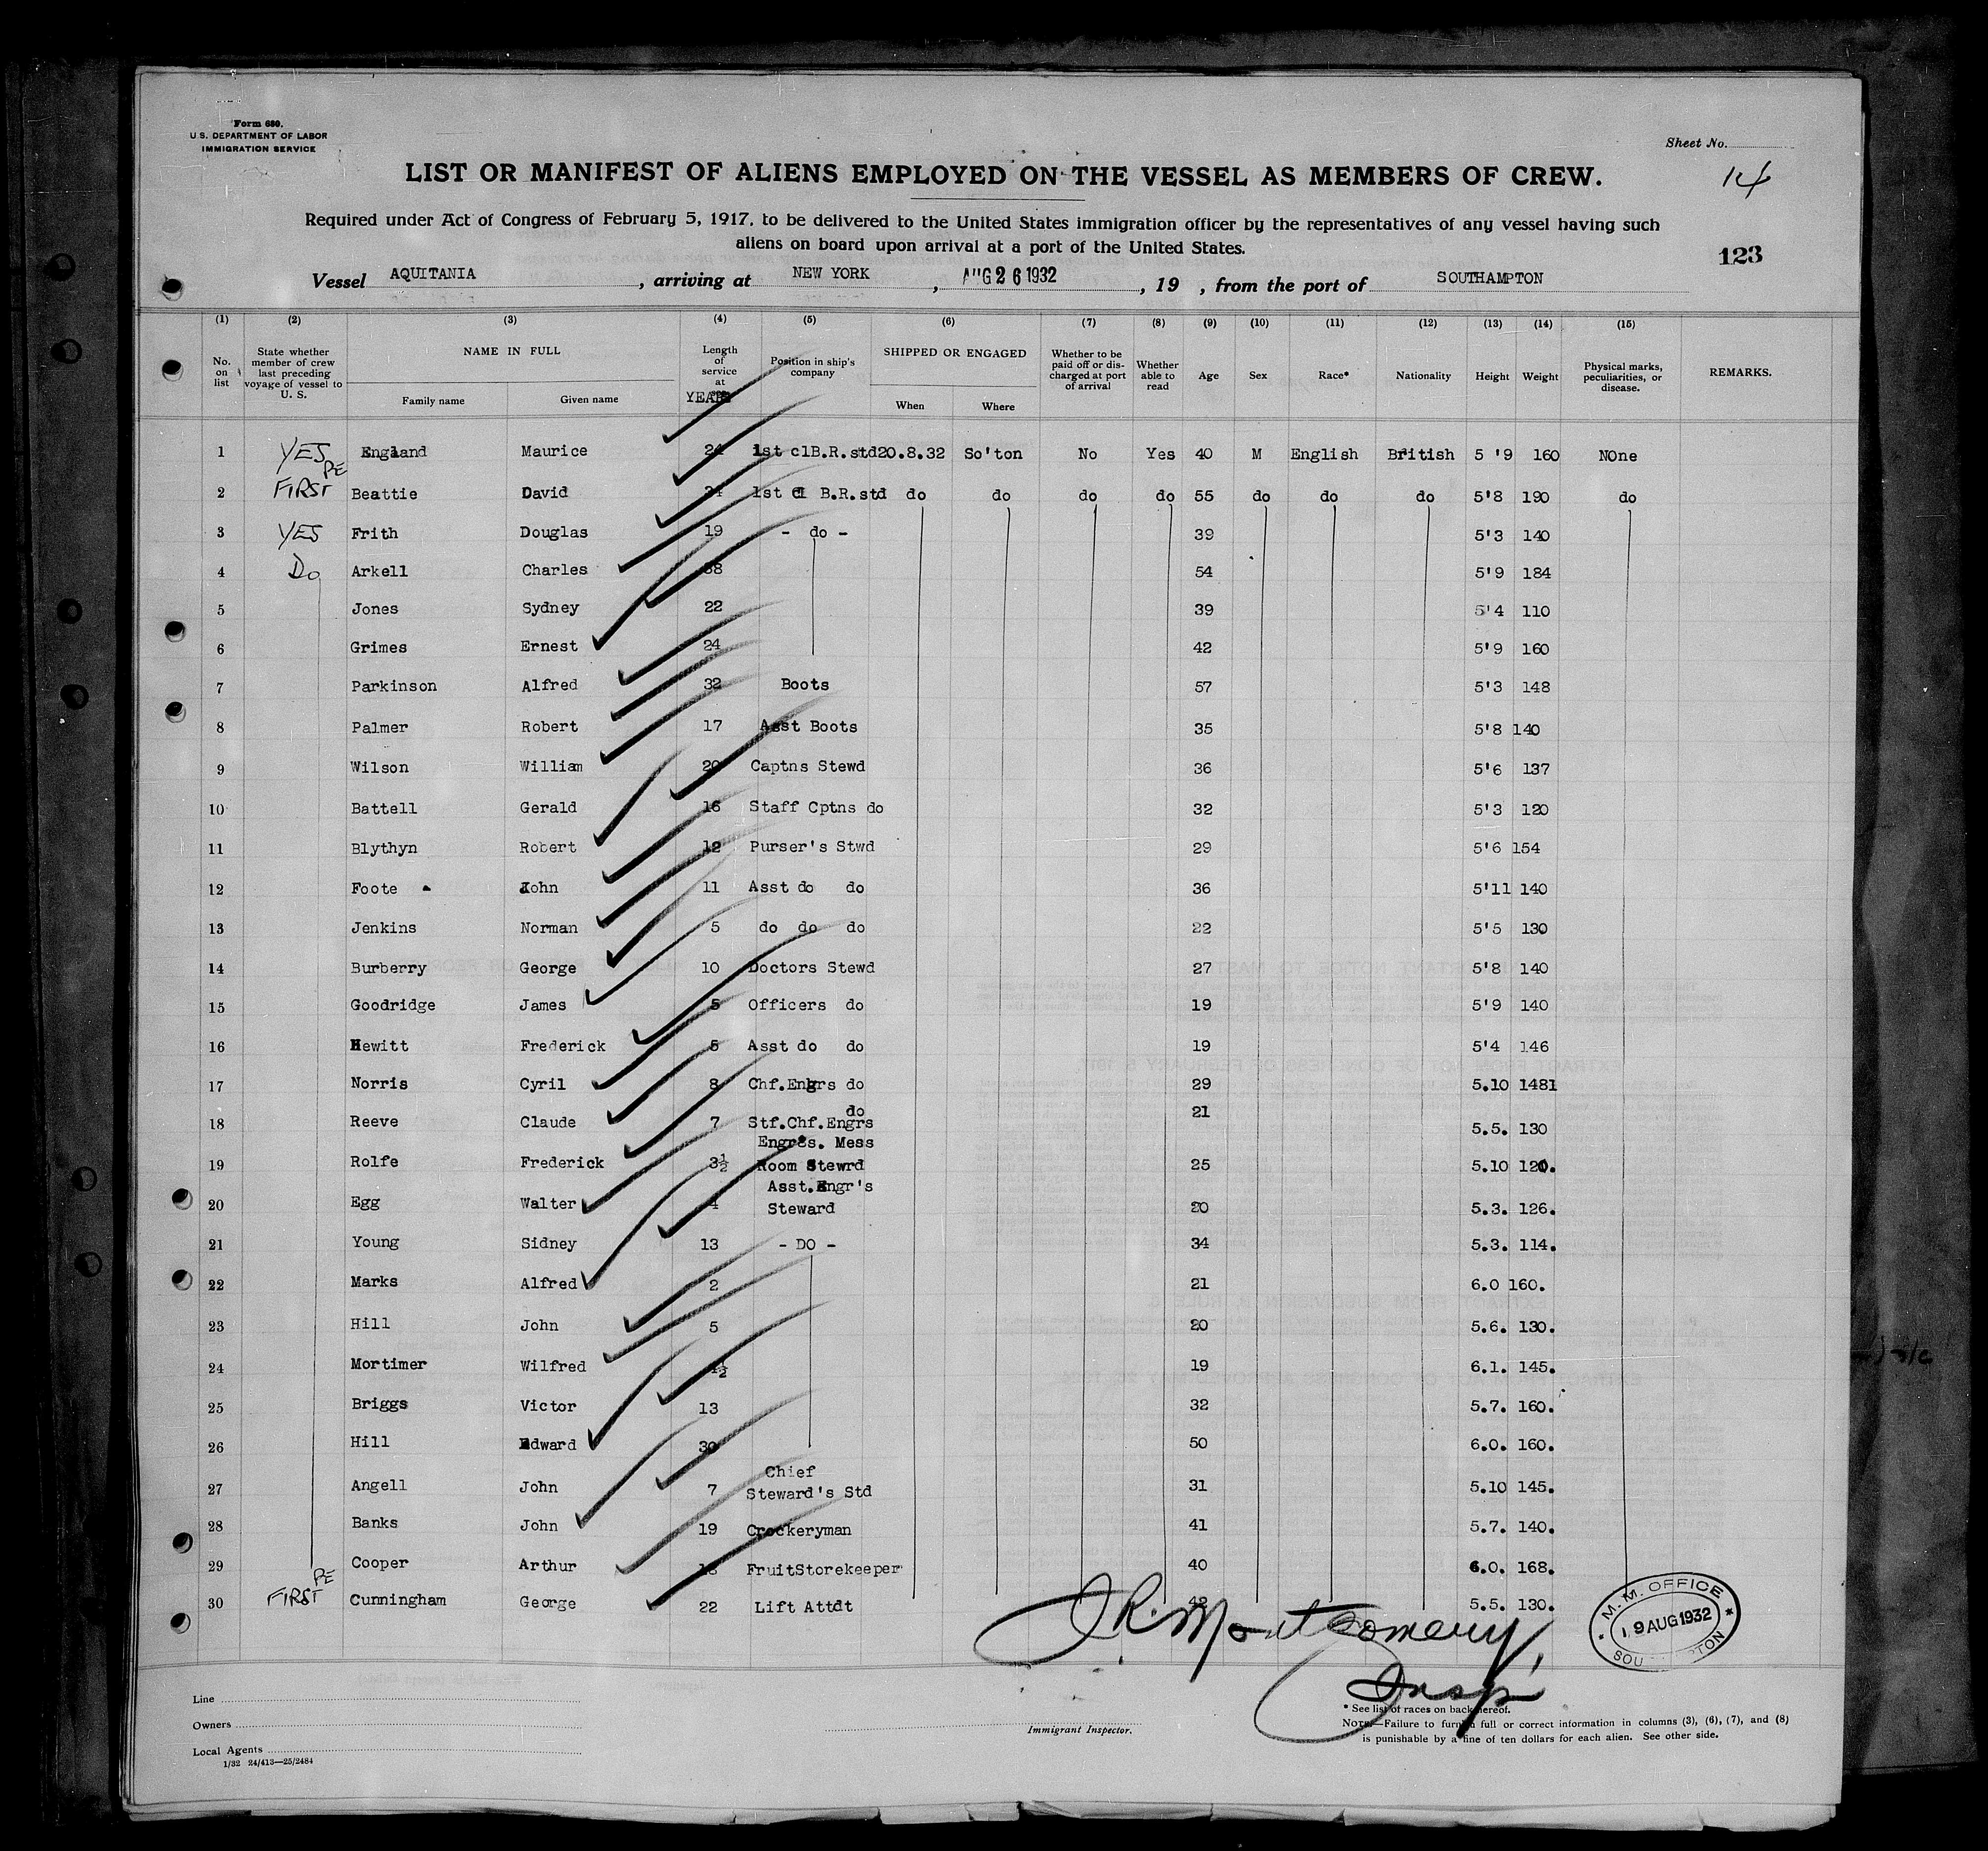 Form 680.
U.S. DEPARTMENT OF LABOR
IMMIGRATION SERVICE
Sheet No.
14
LIST OR MANIFEST OF ALIENS EMPLOYED ON THE VESSEL AS MEMBERS OF CREW.
Required under Act of Congress of February 5, 1917, to be delivered to the United States immigration officer by the representatives of any vessel having such
aliens on board upon arrival at a port of the United States.
123
Vessel AQUITANIA, arriving at NEW YORK, AUG 26 1932, 19 , from the port of SOUTHAMPTON
(1) (2) (3) (4) (5) (6) (7) (8) (9) (10) (11) (12) (13) (14) (15)
No. on list
State whether member of crew last preceding voyage of vessel to U. S.
NAME IN FULL
Family name
Given name
Length of service at
YEARS
Position in ship's company
SHIPPED OR ENGAGED
When
Where
Whether to be paid off or discharged at port of arrival
Whether able to read
Age
Sex
Race*
Nationality
Height
Weight
Physical marks, peculiarities, or disease.
REMARKS.
1 YES England Maurice 24 1st clB.R.std 20.8.32 So'ton No Yes 40 M English British 5 '9 160 NOne
2 PE FIRST Beattie David 1st cl B.R.std do do do do 55 do do do 5'8 190 do
3 YES Frith Douglas 19 - do - 39 5'3 140
4 Do Arkell Charles 38 54 5'9 184
5 Jones Sydney 22 39 5'4 110
6 Grimes Ernest 24 42 5'9 160
7 Parkinson Alfred 32 Boots 57 5'3 148
8 Palmer Robert 17 Asst Boots 35 5'8 140
9 Wilson William 20 Captns Stewd 36 5'6 137
10 Battell Gerald 16 Staff Cptns do 32 5'3 120
11 Blythyn Robert 12 Purser's Stwd 29 5'6 154
12 Foote John 11 Asst do do 36 5'11 140
13 Jenkins Norman 5 do do do 22 5'5 130
14 Burberry George 10 Doctors Stewd 27 5'8 140
15 Goodridge James 5 Officers do 19 5'9 140
16 Hewitt Frederick 5 Asst do do 19 5'4 146
17 Norris Cyril 8 Chf.Engrs do 29 5.10 1481
18 Reeve Claude 7 Stf.Chf.Engrs do 21 5.5. 130
19 Rolfe Frederick 3½ Engr's. Mess Room Stewrd 25 5.10 120.
20 Egg Walter 4 Asst.Engr's Steward 20 5.3. 126.
21 Young Sidney 13 - DO - 34 5.3. 114.
22 Marks Alfred 2 21 6.0 160.
23 Hill John 5 20 5.6. 130.
24 Mortimer Wilfred 19 6.1. 145.
25 Briggs Victor 13 32 5.7. 160.
26 Hill Edward 30 50 6.0. 160.
27 Angell John 7 Chief Steward's Std 31 5.10 145.
28 Banks John 19 Crockeryman 41 5.7. 140.
29 Cooper Arthur FruitStorekeeper 40 6.0. 168.
30 PE FIRST Cunningham George 22 Lift Attdt 42 5.5. 130.
J.R. Montgomery,
Insp
M. M. OFFICE
19 AUG 1932
Line
Owners
Local Agents
1/32 24/413—25/2484
Immigrant Inspector.
* See list of races on back hereof.
NOTE—Failure to furnish full or correct information in columns (3), (6), (7), and (8)
is punishable by a fine of ten dollars for each alien. See other side.